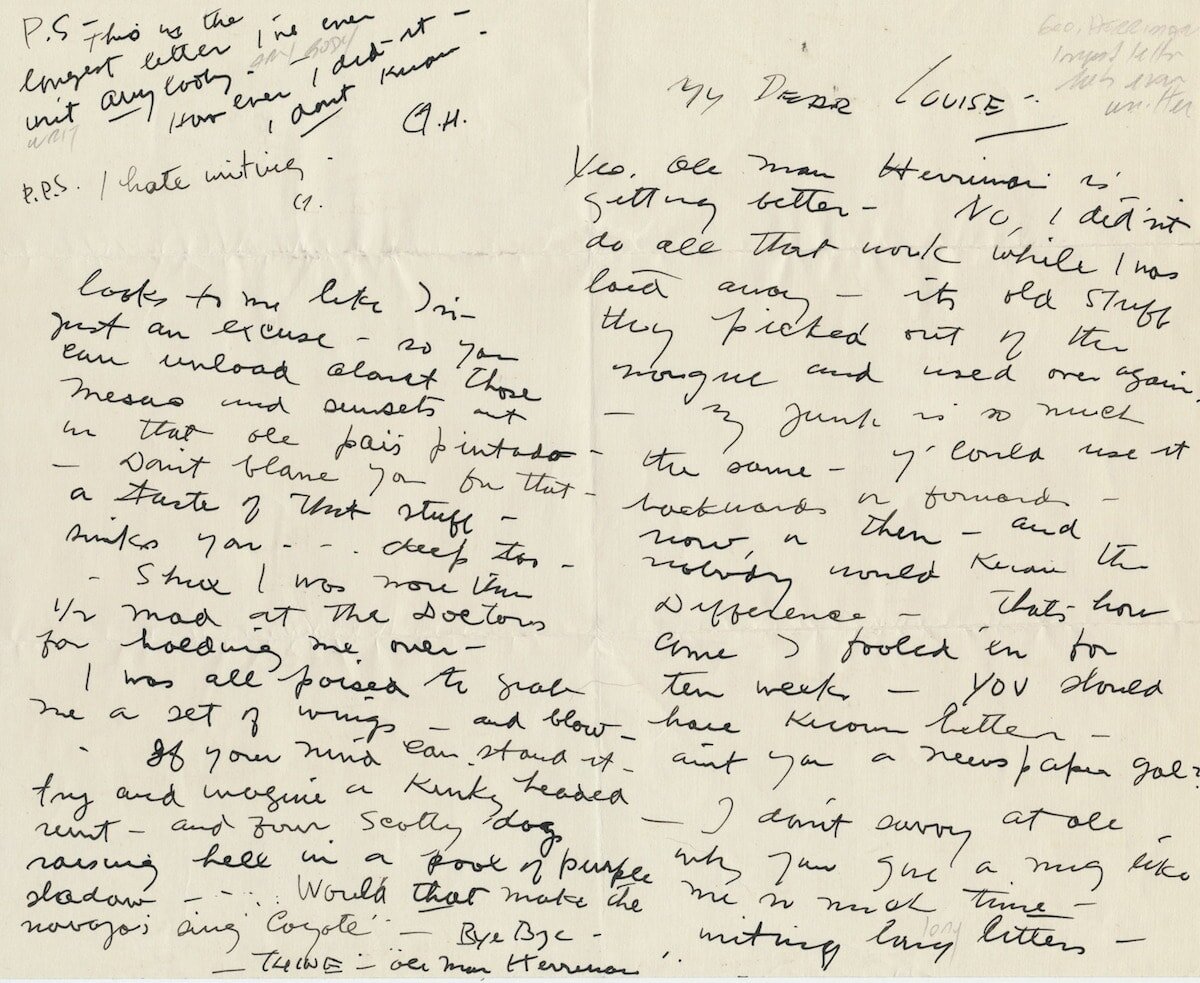 My DEAR LOUISE -
Yes. Ole man Herriman is
getting better - No, I did'nt
do all that work while I was
laid away - its old stuff
they picked out of the
morgue and used over again.
- My junk is so much
the same - y'could use it
backwards or forwards -
now, or then - and
nobody would know the
Difference - thats how
come I fooled 'em for
ten weeks - YOU should
have known better -
aint you a newspaper gal?
- I don't savvy at ole
why you give a mug like
me so much time -
writing long letters -
long
looks to me like I'm
just an excuse - so you
can unload about those
mesas and sunsets out
in that ole pais pintado -
- Don't blame you for that -
a taste of that stuff -
sinks you - - . . deep too -
- Shux I was more than
1/2 mad at the Doctors
for holding me over -
I was all poised to grab
me a set of wings - and blow -
If your mind can stand it -
try and imagine a Kinky headed
runt - and four Scotty dogs
raising hell in a pool of purple
shadow - - . . . Would that make the
navajos sing "Coyote" - Bye Bye -
- THINE - Ole Man Herriman
P.S - This is the
longest letter I've ever
writ anybody -
ANY BODY
WRIT
How ever I did it -
I dont know -
G.H.
P.P.S. I hate writing -
G.
Geo. Herriman
longest letter
he's ever
written